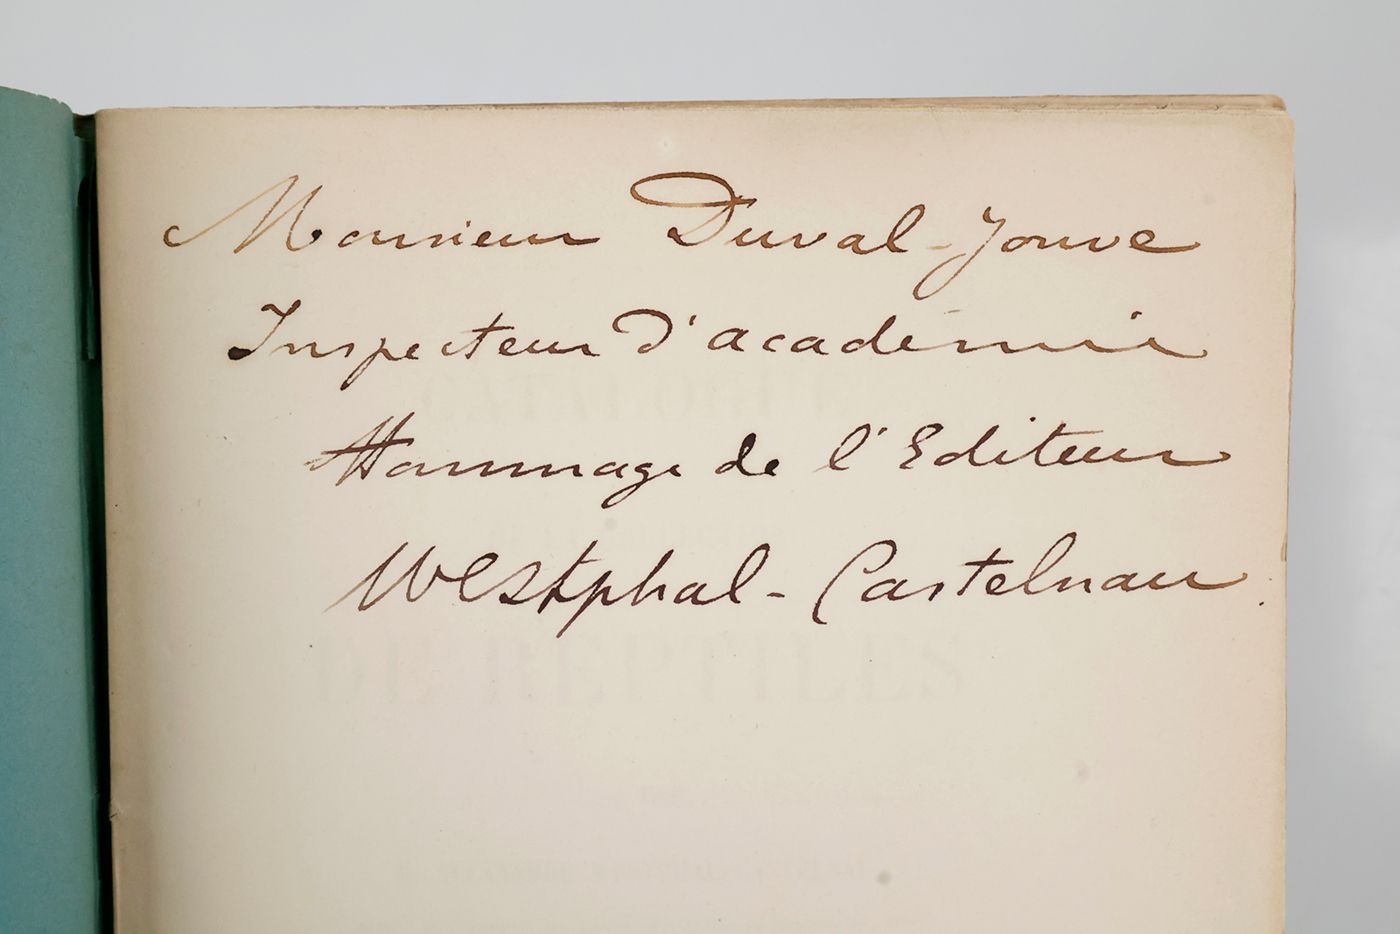 Monsieur Duval-Jouve
Inspecteur d'académie
Hommage de l'Editeur
Westphal-Castelnau
CATALOGUE
DE REPTILES